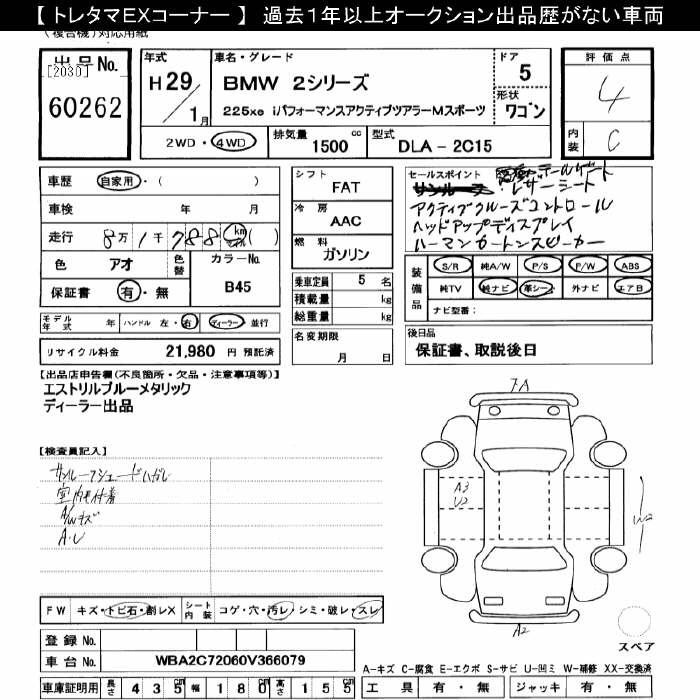 【 トレタマEXコーナー 】 過去１年以上オークション出品歴がない車両
(複合機) 対応用紙
出品No.
[2030]
60262
年式
H29/1月
車名・グレード
BMW 2シリーズ
225xe iパフォーマンスアクティブツアラーMスポーツ
ドア
5
形状
ワゴン
評価点
4
内装
C
2WD・4WD
排気量 1500 cc
型式 DLA－2C15
車歴 自家用・( )
車検 年 月
走行 8万1千788 km マイル ( )
色 アオ
色替
カラーNo.
B45
保証書 有・無
モデル年式 年 ハンドル 左・右 ディーラー・並行
リサイクル料金 21,980 円 預託済
シフト
FAT
冷房
AAC
燃料
ガソリン
乗車定員 5 名
積載量 kg
総重量 kg
名変期限
月 日
セールスポイント
テールゲート
サンルーフ・レザーシート
アクティブクルーズコントロール
ヘッドアップディスプレイ
ハーマンカードンスピーカー
装備品
S/R 純A/W P/S P/W ABS
純TV 純ナビ 革シート 外ナビ エアB
ナビ型番：
後日品
保証書、取説後日
【出品店申告欄(不良箇所・欠品・注意事項等)】
エストリルブルーメタリック
ディーラー出品
【検査員記入】
サンルーフシェードハガレ
室内毛付着
A/Wキズ
A・U
FA
A3
U2
W2
A2
スペア
FW キズ・トビ石・割レX
シート内装 コゲ・穴・汚レ・シミ・破レ・スレ
登録 No.
車台 No. WBA2C72060V366079
車庫証明用 長さ 435 cm 幅 180 cm 高さ 155 cm
A-キズ C-腐食 E-エクボ S-サビ U-凹ミ W-補修 XX-交換済
工具 有・無 ジャッキ 有・無